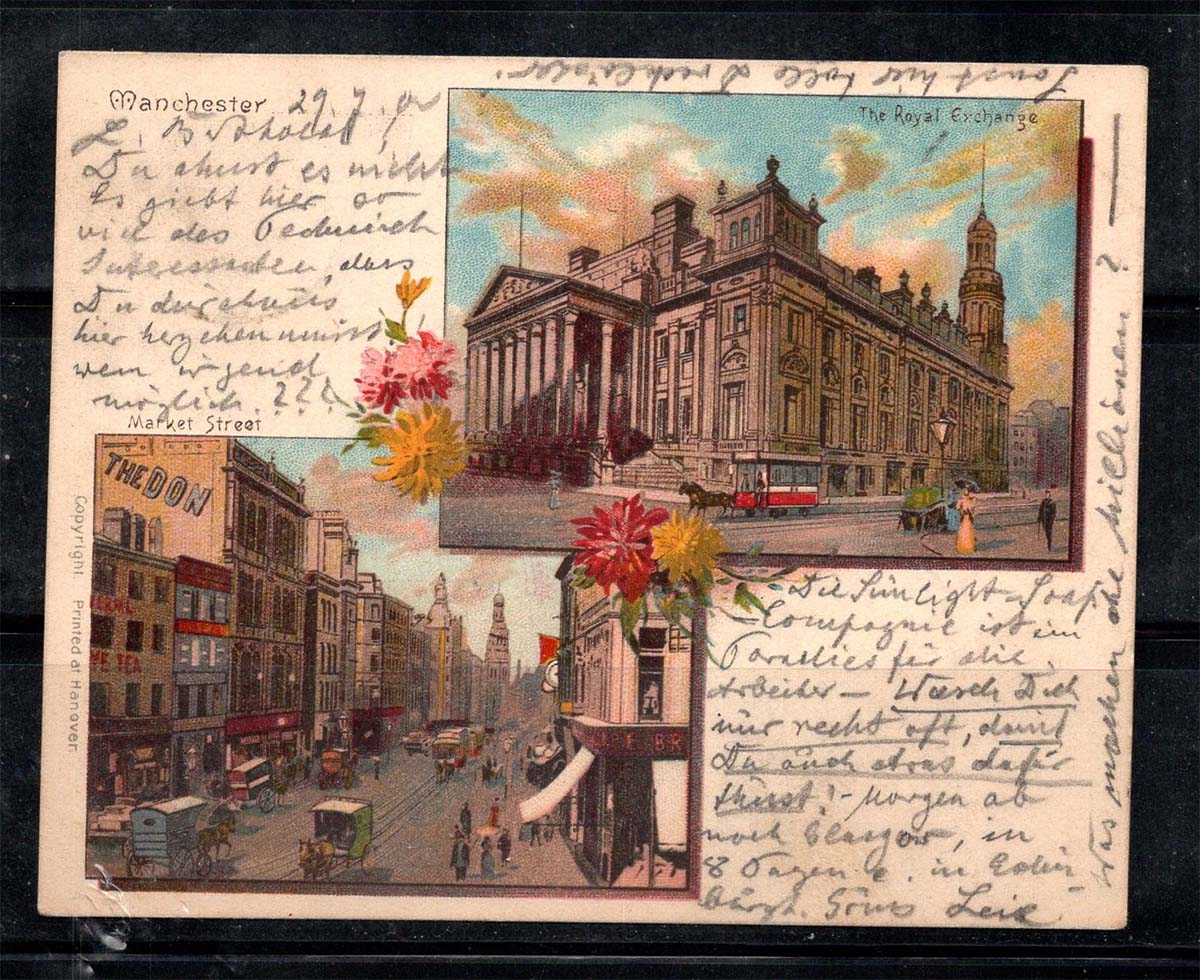 Manchester 29.7.00
L. Berthold!
Du ahnst es nicht
Es giebt hier so
viel des Technisch
Interessanten, dass
Du durchaus
hier herziehen musst
wenn irgend
möglich. ???
Market Street
THE DON
TEA
BR
Copyright Printed at Hanover.
The Royal Exchange
Sonst hier
Die Sunlight-Soap
Compagnie ist ein
Paradies für die
Arbeiter – Wasch Dich
nur recht oft, damit
Du auch etwas dafür
thust! – Morgen ab
nach Glasgow, in
8 Tagen in Edin
burgh. Gruss
Was machen die Millionen? —